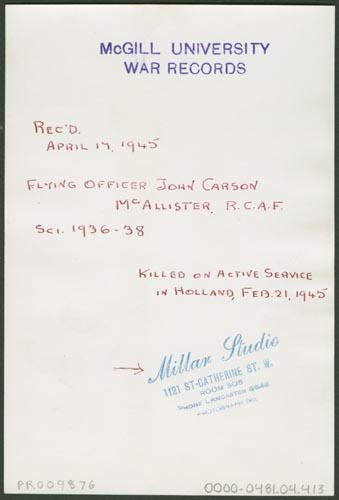 McGILL UNIVERSITY
WAR RECORDS
REC'D.
APRIL 17, 1945
FLYING OFFICER JOHN CARSON
MCALLISTER, R.C.A.F.
SCI. 1936-38
KILLED ON ACTIVE SERVICE
IN HOLLAND, FEB. 21, 1945
Millar Studio
1121 ST-CATHERINE ST. W.
ROOM 305
PHONE LANCASTER
PHOTOGRAPH NO.
PR009876
0000-0481.04.413